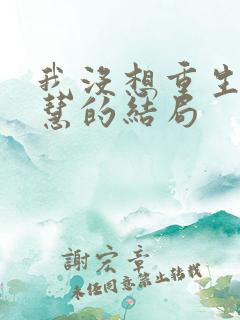 我沒想重生
慧的結局
謝宏章
未任同意禁止转载